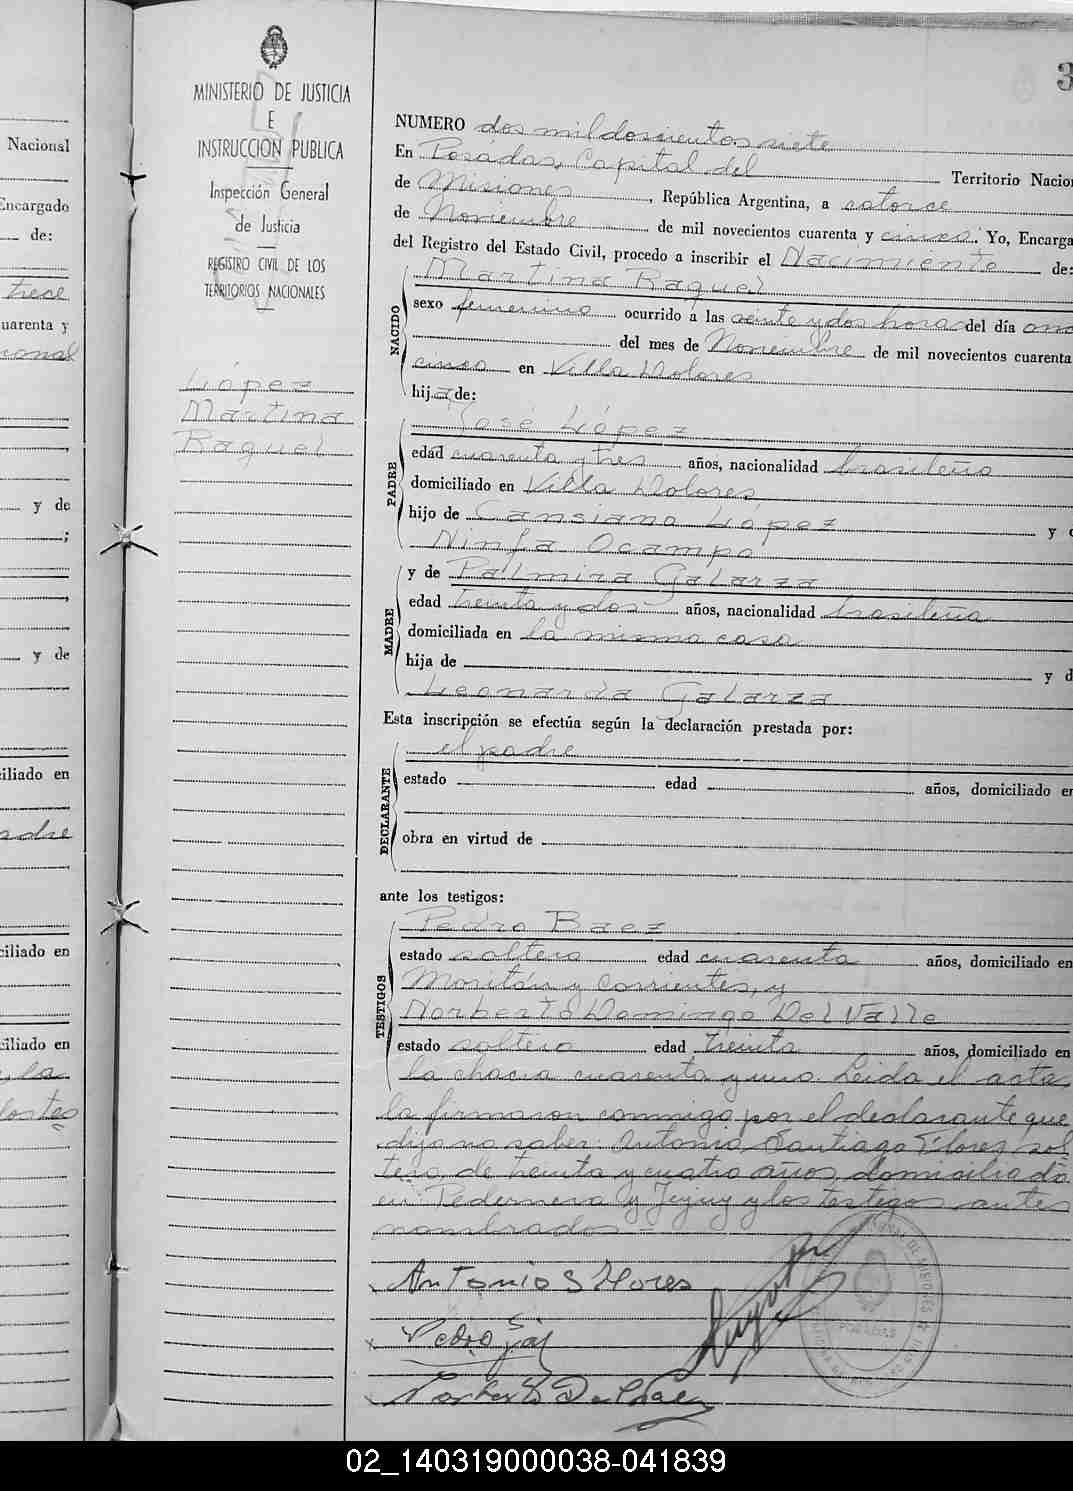 3
MINISTERIO DE JUSTICIA
E
INSTRUCCION PUBLICA
Inspección General
de Justicia
REGISTRO CIVIL DE LOS
TERRITORIOS NACIONALES
López
Martina
Raquel
NUMERO dos mil doscientos siete
En Posadas, Capital del Territorio Nacio
de Misiones, República Argentina, a catorce
de Noviembre de mil novecientos cuarenta y cinco. Yo, Encarga
del Registro del Estado Civil, procedo a inscribir el Nacimiento de:
NACIDO
Martina Raquel
sexo femenino ocurrido a las veinte y dos horas del día onc
del mes de Noviembre de mil novecientos cuarenta
cinco en Villa Dolores
hija de:
PADRE
José López
edad cuarenta y tres años, nacionalidad brasileño
domiciliado en Villa Dolores
hijo de Cansiano López y
Ninfa Ocampo
MADRE
y de Palmira Galarza
edad treinta y dos años, nacionalidad brasileña
domiciliada en la misma casa
hija de y d
Leonarda Galarza
Esta inscripción se efectúa según la declaración prestada por:
DECLARANTE
el padre
estado edad años, domiciliado en
obra en virtud de
ante los testigos:
TESTIGOS
Pedro Baez
estado soltero edad cuarenta años, domiciliado en
y Corrientes, y
Norberto Domingo Del Valle
estado soltero edad treinta años, domiciliado en
la chacra cuarenta y uno. Leida el acta,
la firmaron conmigo, por el declarante que
dijo no saber: Antonio Santiago Flores, sol
tero, de treinta y cuatro años, domiciliado
en Pedernera y Jujuy y los testigos antes
nombrados =
Antonio S Flores
Pedro
Norberto
POSADAS
Nacional
Encargado
de:
trece
uarenta y
cional
y de
;
y de
ciliado en
adre
ciliado en
ciliado en
y la
los tes
02_140319000038-041839